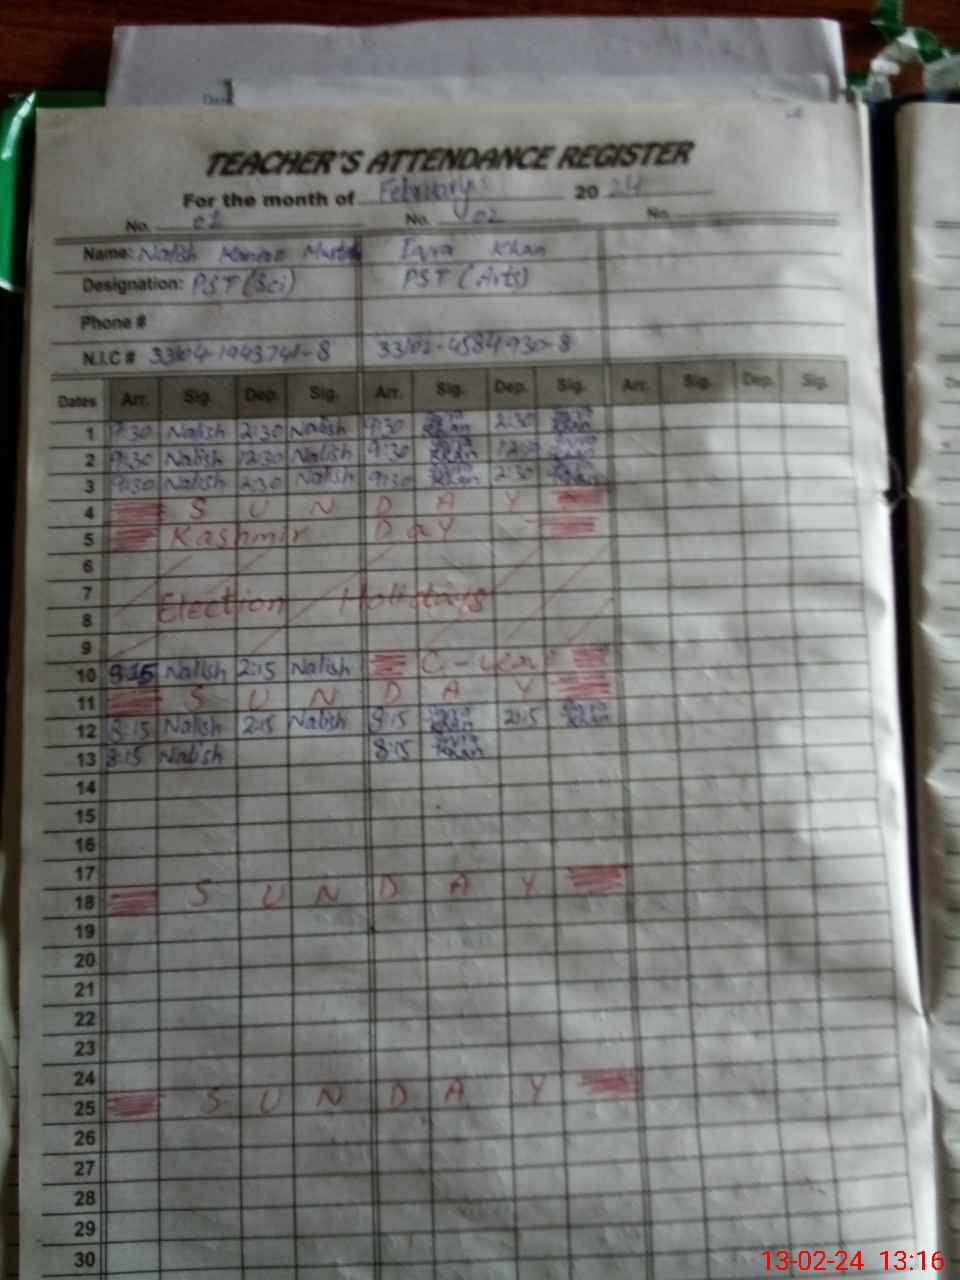 TEACHER'S ATTENDANCE REGISTER
For the month of February 2024
No. 01 No. 02 No.
Name: Nalish Iqra Khan
Designation: PST (Sci) PST (Arts)
Phone #
N.I.C # 33104-1943741-8 33102-4584930-8
Dates Arr. Sig. Dep. Sig. Arr. Sig. Dep. Sig. Arr. Sig. Dep. Sig.
1 9:30 Nalish 2:30 Nalish 9:30 Iqra Khan 2:30 Iqra Khan
2 9:30 Nalish 12:30 Nalish 9:30 Iqra Khan 12:30 Iqra Khan
3 9:30 Nalish 2:30 Nalish 9:30 Iqra Khan 2:30 Iqra Khan
4 S U N D A Y
5 Kashmir Day
6
7 Election Holidays
8
9
10 8:15 Nalish 2:15 Nalish C-leave
11 S U N D A Y
12 8:15 Nalish 2:15 Nalish 8:15 Iqra Khan 2:15 Iqra Khan
13 8:15 Nalish 8:15 Iqra Khan
14
15
16
17
18 S U N D A Y
19
20
21
22
23
24
25 S U N D A Y
26
27
28
29
30
13-02-24 13:16